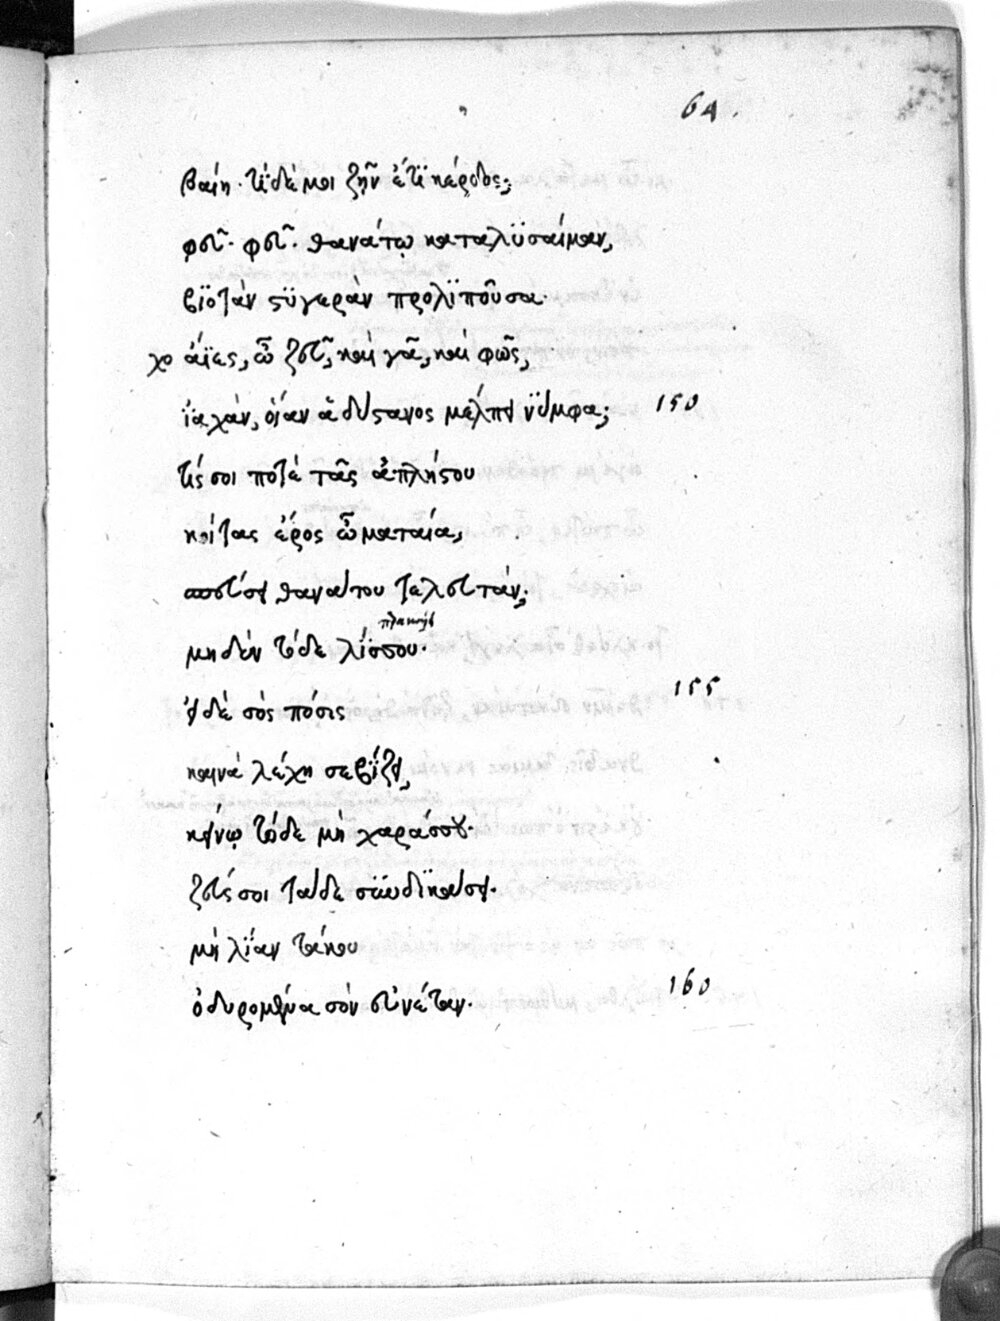 64.
βαίη· τί δέ μοι ζῆν ἔτι κέρδος;
φεῦ· φεῦ· θανάτῳ καταλυσαίμαν,
βιοτὰν στυγερὰν προλιποῦσα·
χο ἄϊες, ὦ ζεῦ, καὶ γᾶ, καὶ φῶς,
ἰαχὰν, οἵαν ἁ δύστανος μέλπει νύμφα; 150
τίς σοι ποτὲ τᾶς ἀπλήστου
κοίτας ἔρος ὦ ματαία,
σπεύσει θανάτου τελευτάν;
πλακῇς
μηδὲν τόδε λίσσου·
εἰ δὲ σὸς πόσις 155
καινὰ λέχη σεβίζει,
κείνῳ τόδε μὴ χαράσσου·
ζεύς σοι τάδε συνδικάσει·
μὴ λίαν τάκου
ὀδυρομένα σὸν εὐνέταν· 160